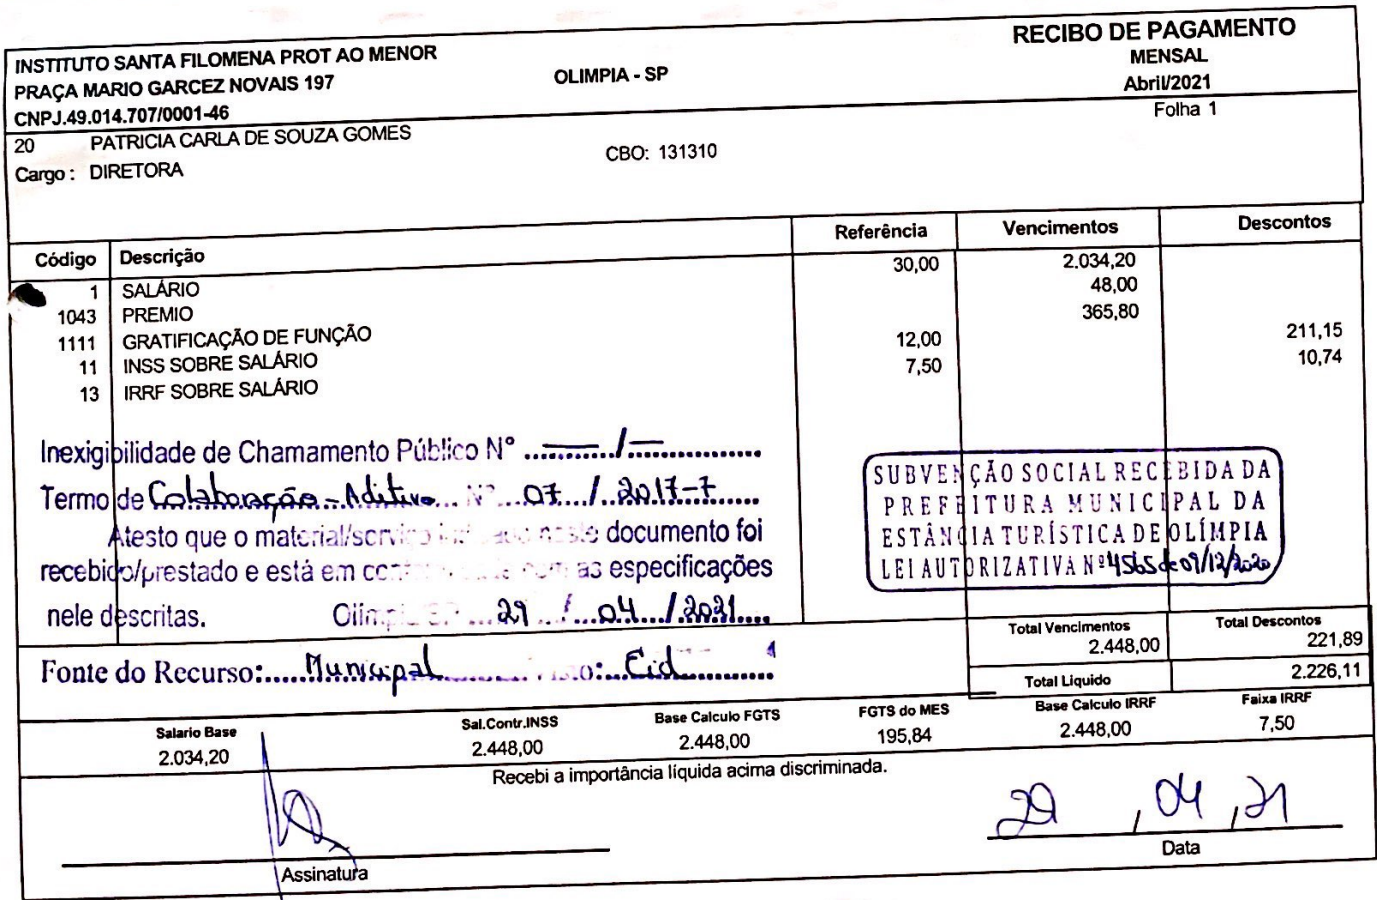 INSTITUTO SANTA FILOMENA PROT AO MENOR
PRAÇA MARIO GARCEZ NOVAIS 197
CNPJ.49.014.707/0001-46
OLIMPIA - SP
RECIBO DE PAGAMENTO
MENSAL
Abril/2021
Folha 1
20 PATRICIA CARLA DE SOUZA GOMES
Cargo : DIRETORA
CBO: 131310
Código Descrição Referência Vencimentos Descontos
1 SALÁRIO 30,00 2.034,20
1043 PREMIO 48,00
1111 GRATIFICAÇÃO DE FUNÇÃO 365,80
11 INSS SOBRE SALÁRIO 12,00 211,15
13 IRRF SOBRE SALÁRIO 7,50 10,74
Inexigibilidade de Chamamento Público N° — / —
Termo de Colaboração - Aditivo Nº 07 / 2017-7
Atesto que o material/serviço neste documento foi
recebido/prestado e está em com as especificações
nele descritas. Olímpia/SP 29 / 04 / 2021
Fonte do Recurso: Municipal Eid
SUBVENÇÃO SOCIAL RECEBIDA DA
PREFEITURA MUNICIPAL DA
ESTÂNCIA TURÍSTICA DE OLÍMPIA
LEI AUTORIZATIVA Nº 4565 de 09/12/2020
Total Vencimentos Total Descontos
2.448,00 221,89
Total Liquido 2.226,11
Salario Base Sal.Contr.INSS Base Calculo FGTS FGTS do MES Base Calculo IRRF Faixa IRRF
2.034,20 2.448,00 2.448,00 195,84 2.448,00 7,50
Recebi a importância líquida acima discriminada.
29 , 04 , 21
Assinatura
Data